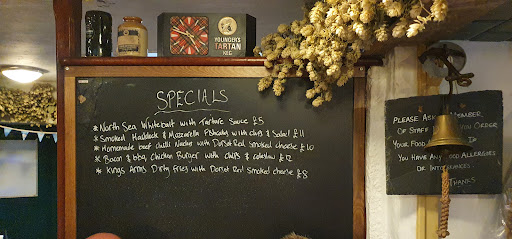 YOUNGER'S
TARTAN
KEG
SPECIALS
* North Sea Whitebait with Tartare Sauce £5
* Smoked Haddock & Mozzarella Fishcake with chips & Salad £11
* Homemade beef chilli Nachos with Dorset Red smoked cheese £10
* Bacon & bbq Chicken Burger with chips & coleslaw £12
* Kings Arms Dirty fries with Dorset Red smoked cheese £8
PLEASE ASK MEMBER
OF STAFF YOU ORDER
YOUR FOOD IF
YOU HAVE ANY FOOD ALLERGIES
OR INTOLERANCES
THANKS